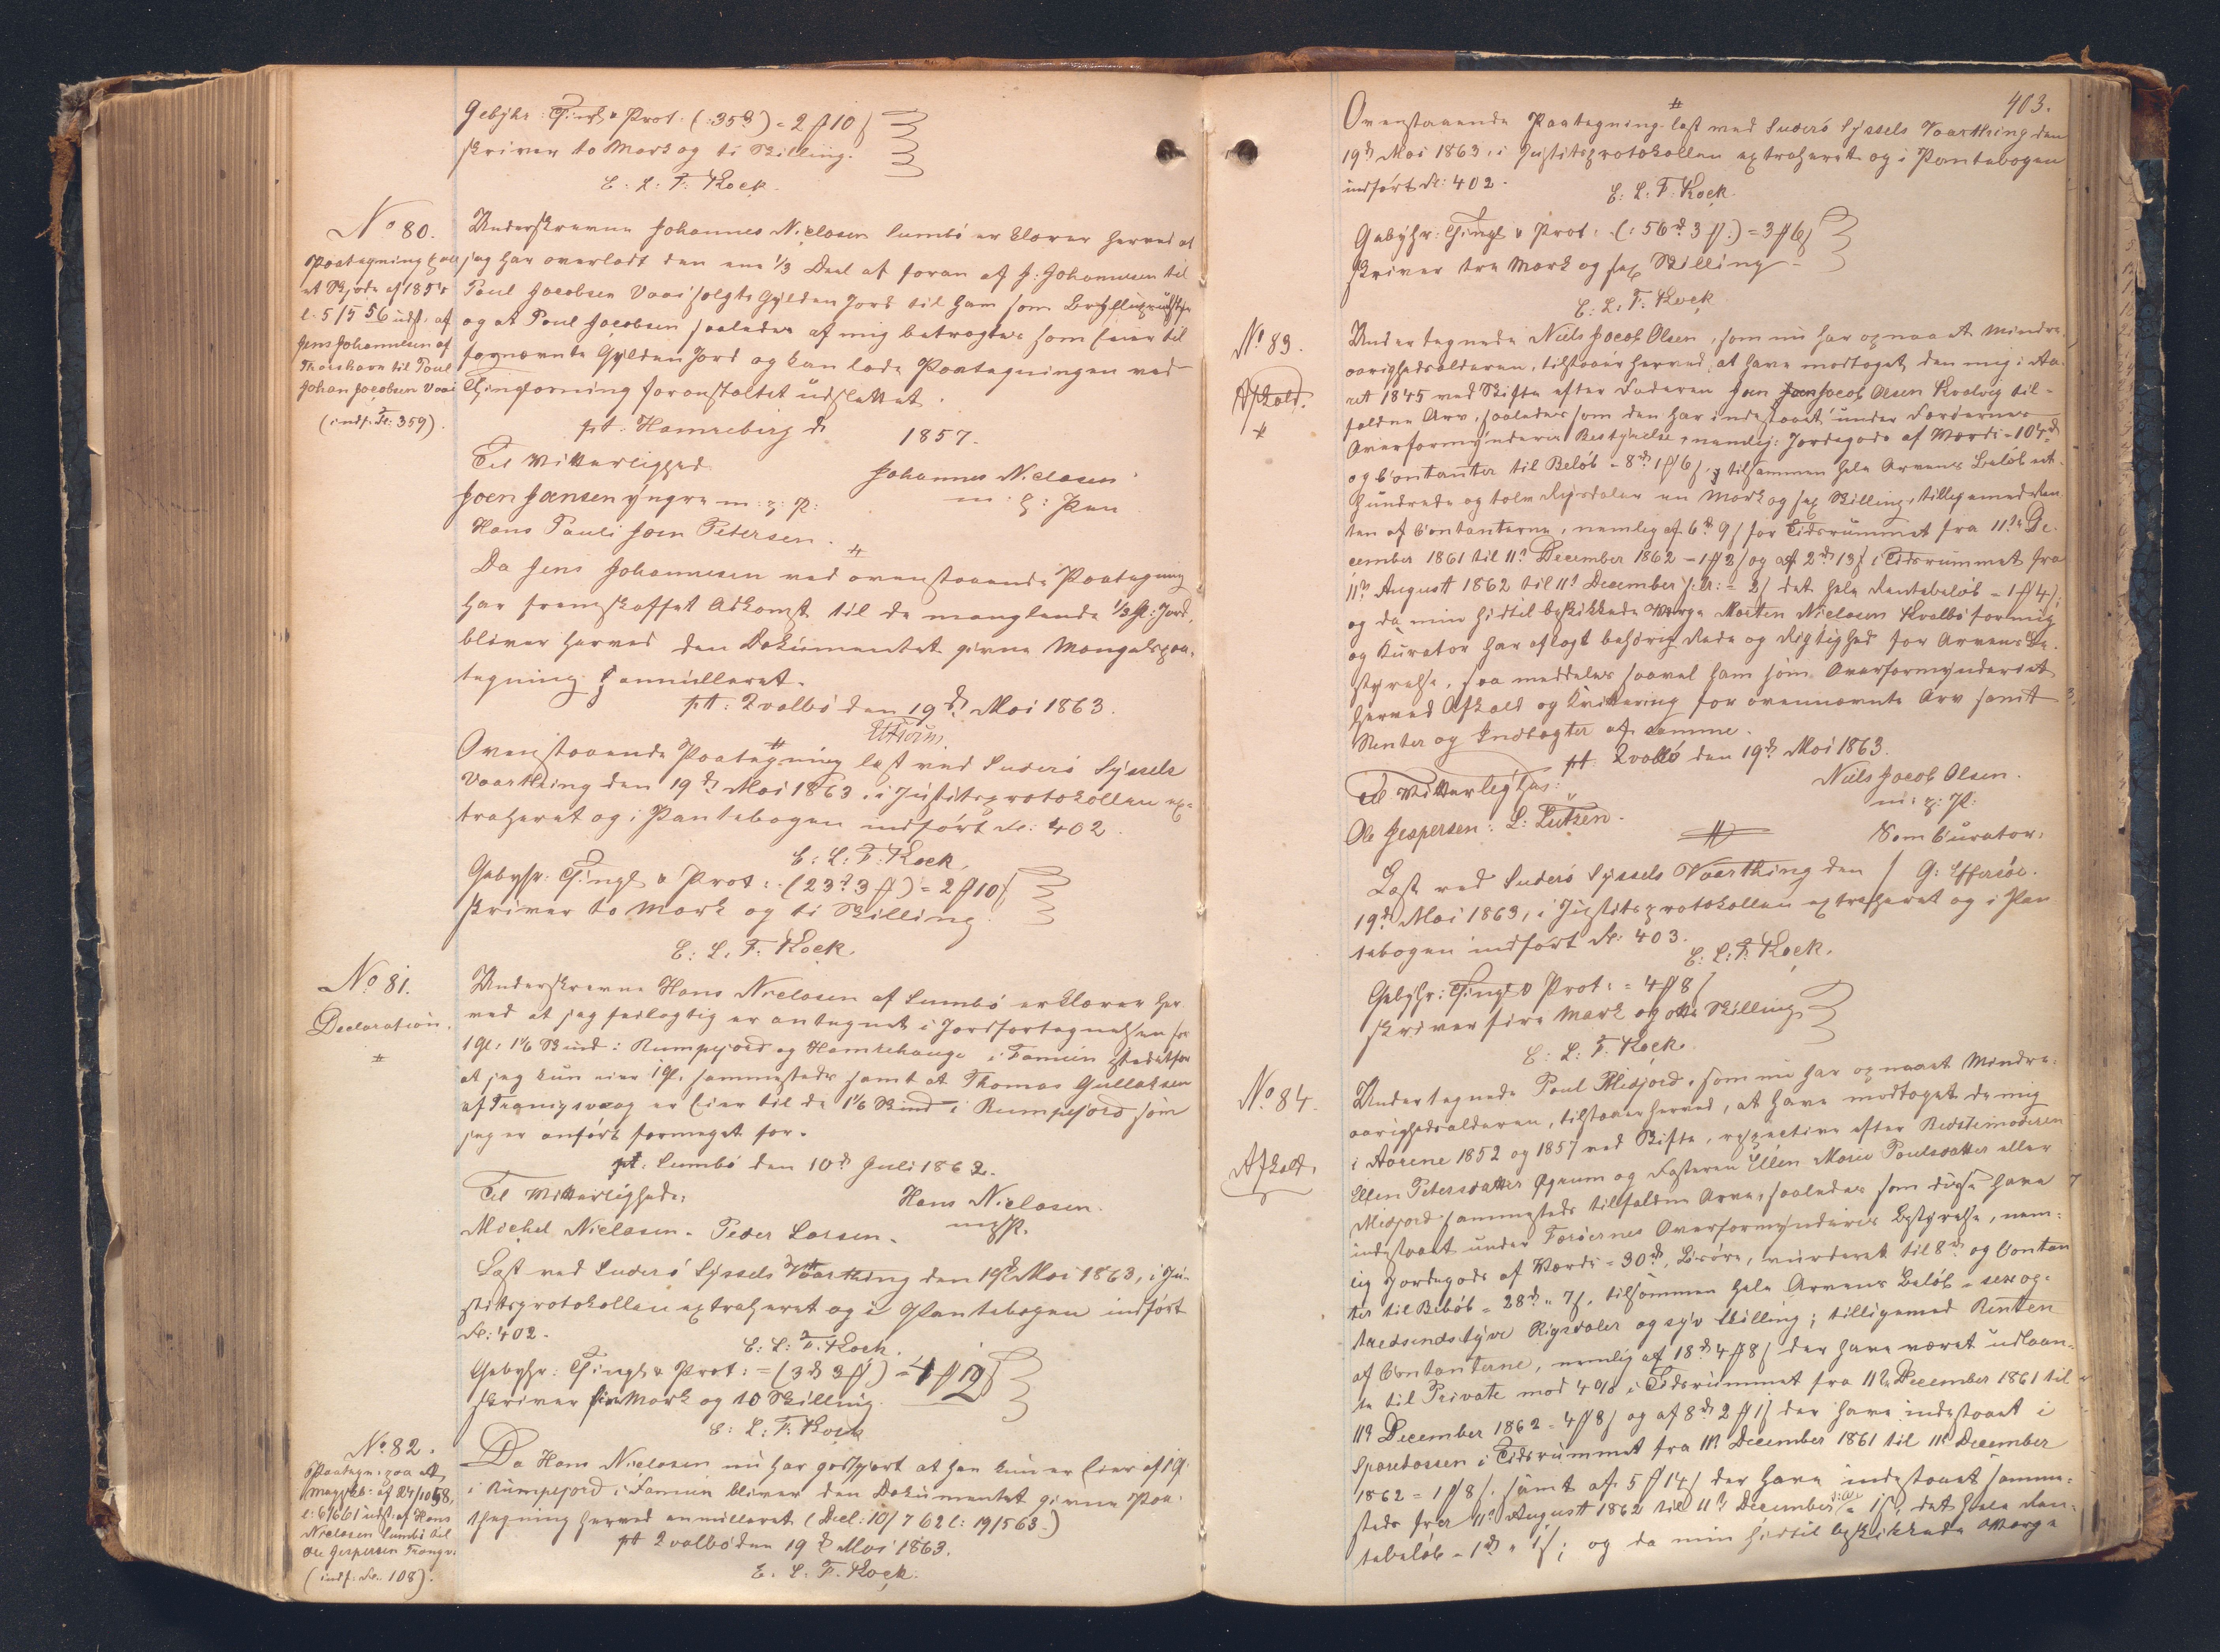 Gebyhr: Tingl & Prot. (:35 ) = 2 10
skriver to Mark og ti Skilling.
E: L: F: Kock.
No 80.
Paategning paa
et Skjøde af 185
l. 5/5 56 udst. af
Jens Johannesen af
Thorshavn til Poul
Johan Jacobsen Vaai
(indf. Fol: 359).
Underskrevne Johannes Niclasen Sumbø erklærer herved at
jeg har overladt den ene 1/3 Deel af foran af J. Johannesen til
Poul Jacobsen Vaai solgte Gylden Jord til ham som
og at Poul Jacobsen saaledes af mig betragtes som Eier til
fornævnte Gylden Jord og kan lade Paategningen ved
Thinglæsning foranstaltet udslettet.
pt. Hamrebierg d. 1857.
Til Vitterlighed
Johannes Niclasen
m: f: Pen
Joen Joensen yngre m: f: P:
Hans Pauli Joen Petersen.
Da Jens Johannesen ved ovenstaaende Paategning
har fremskaffet Adkomst til de manglende 1/3 Jord,
bliver herved den Dokumentet givne Mangelspaa-
tegning annulleret.
pt: Qvalbø den 19d Mai 1863.
Ovenstaaende Paategning læst ved Suderø Syssels
Vaarthing den 19d Mai 1863, i Justitsprotokollen ex-
traheret og i Pantebogen indført Fol: 402.
E: L: F: Kock.
Gebyhr: Tingl & Prot: (23 3 ) = 2 10
skriver to Mark og ti Skilling.
E: L: F: Kock.
No 81.
Declaration.
Underskrevne Hans Niclasen af Sumbø erklærer her-
ved at jeg feilagtig er antegnet i Jordfortegnelsen for
1 Gl: 1 1/6 Skind: Rumpejord og Hamrehauge i Famien istedetfor
at jeg kun eier 1 Gl. sammesteds samt at Thomas Gullaksen
af Trangisvaag er Eier til de 1 1/6 Skind i Rumpejord som
jeg er anført formeget for.
pt. Sumbø den 10d Juli 1862.
Til Vitterlighed:
Hans Niclasen.
mfP.
Michel Niclasen. Peder Larsen.
Læst ved Suderø Syssels Vaarthing den 19d Mai 1863, i Ju-
stitsprotokollen extraheret og i Pantebogen indført
Fol: 402.
E: L: F: Kock.
Gebyhr: Tingl & Prot: = (3 3 ) = 4
skriver fire Mark og 10 Skilling.
E: L: F: Kock
No 82.
Paategn: paa et
af 24/10 58,
l. 6/6 61 udst. af Hans
Niclasen Sumbø til
Ole Jespersen Trongv.
(indf: Fol: 108).
Da Hans Niclasen nu har godtgjort at han kun er Eier af 1 Gl
i Rumpejord i Famien bliver den Dokumentet givne Paa-
thegning herved annulleret (Decl: 10/7 62 l: 19/5 63.)
pt Qvalbø den 19d Mai 1863.
E. L. F. Kock.
403.
Ovenstaaende Paategning læst ved Suderø Syssels Vaarthing den
19d Mai 1863, i Justitsprotokollen extraheret og i Pantebogen
indført Fol: 402.
E: L: F. Kock.
Gebyhr: Tingl & Prot: (:56 3 :) = 3 6
skriver tre Mark og sex Skilling.
E: L: F: Kock
No 83.
Afkald.
Undertegnede Niels Jacob Olsen, som nu har opnaaet Mindre-
aarighedsalderen, tilstaaer herved, at have modtaget den mig i Aa-
ret 1845 ved Skifte efter Faderen Joen Jacob Olsen Kvalvig til-
falden Arv, saaledes som den har indestaaet under Færøernes
Overformynderies Bestyrelse, nemlig: Jordegods af Værdi = 104
og Contanter til Beløb = 8 1 6 , tilsammen hele Arvens Beløb et-
hundrede og tolv Rigsdaler en Mark og sex Skilling, tilligemed Ren-
ten af Contanterne, nemlig af 6 9 for Tidsrummet fra 11te De-
cember 1861 til 11te December 1862 = 1 3 og af 2 13 i Tidsrummet fra
11te August 1862 til 11te December s: A: = 2 det hele Rentebeløb = 1 4 ;
og da min hidtil beskikkede Værge Morten Niclasen Kvalbø for mig
og Kurator har aflagt behørig Rede og Rigtighed for Arvens Be-
styrelse, saa meddeles saavel ham som Overformynderiet
herved Afkald og Kvittering for ovennævnte Arv samt
Renter og Indtægter af samme.
pt. Qvalbø den 19d Mai 1863.
Til Vitterlighed:
Niels Jacob Olsen.
m: f: P:
Ole Jespersen: L: Lützen.
Som Curator:
G: Effersøe.
Læst ved Suderø Syssels Vaarthing den
19d Mai 1863, i Justitsprotokollen extraheret og i Pan
tebogen indført Fol: 403.
E: L: F. Kock.
Gebyhr: Tingl & Prot: = 4 8
skriver fire Mark og otte Skilling
E: L: F. Kock.
No 84.
Afkald.
Undertegnede Poul Midjord, som nu har opnaaet Mindre-
aarighedsalderen, tilstaaer herved, at have modtaget de mig
i Aarene 1852 og 1857 ved Skifte, respective efter Bedstemoderen
Ellen Petersdatter Øgrum og Fasteren Ellen Marie Poulsdatter eller
Midjord sammesteds tilfaldne Arve, saaledes som disse have
indestaaet under Færøernes Overformynderies Bestyrelse, nem-
lig Jordegods af Værdi = 30 , Løsøre, vurderet til 8 og Contan
ter til Beløb = 28 " 7 , tilsammen hele Arvens Beløb = sex og-
tredsindstyve Rigsdaler og syv Skilling; tilligemed Renten
af Contanterne, nemlig af 18 4 8 der have været udlaan-
te til Private mod 4% i Tidsrummet fra 11te December 1861 til
11te December 1862 = 4 8 og af 8 2 1 der have indestaaet i
Sparekassen i Tidsrummet fra 11te December 1861 til 11te December
1862 = 1 8 , samt af 5 14 der have indestaaet samme-
steds fra 11te August 1862 til 11te December = 1 , det hele Ren-
tebeløb = 1 " 1 ; og da min hidtil beskikkede Værge